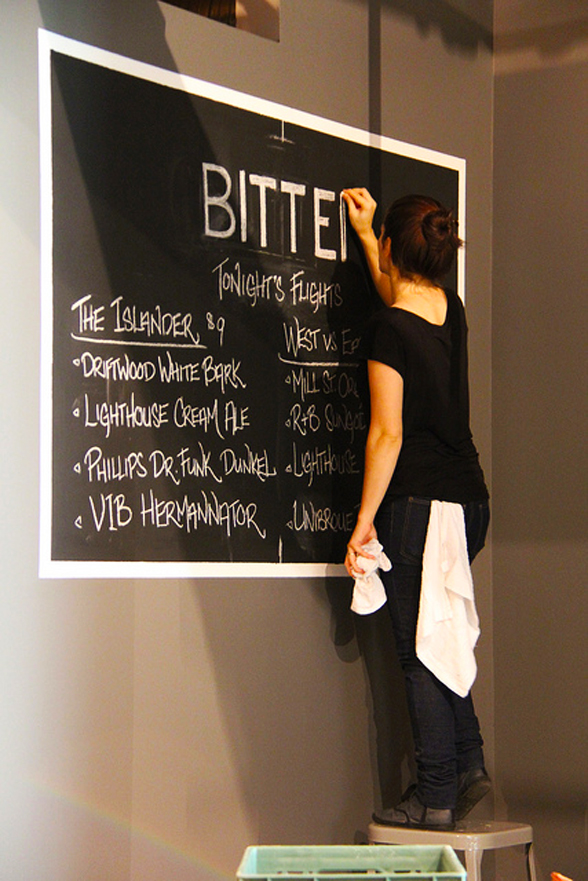 BITTE
TONIGHT'S FLIGHTS
THE ISLANDER $9
DRIFTWOOD WHITE BARK
LIGHTHOUSE CREAM ALE
PHILLIPS DR. FUNK DUNKEL
VIB HERMANNATOR
WEST VS
MILL ST.
R+B
LIGHTHOUSE
UNIBROUE